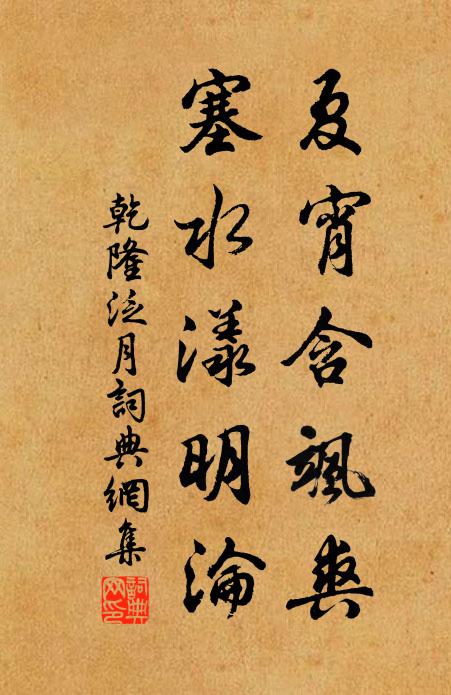 夏宵含颯爽
塞水漾明淪
乾隆泛月詞典網集
詞典
網印